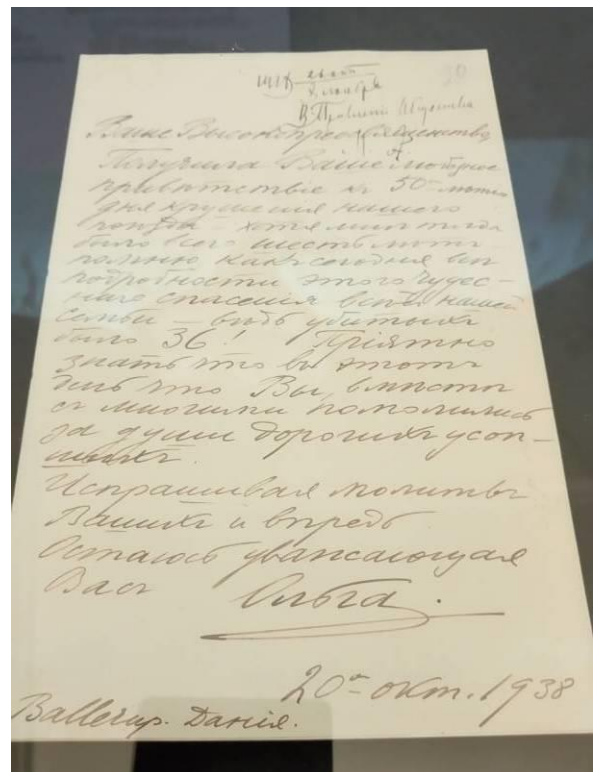 30
В Правление Общества
Ваше Высокопреосвященство,
Получила Ваше любезное
привѣтствіе къ 50-лѣтію
дня крушенія нашего
поѣзда – хотя мнѣ тогда
было всего шесть лѣтъ
помню какъ сегодня всѣ
подробности этого чудес-
наго спасенія всей нашей
семьи – вѣдь убитыхъ
было 36! Пріятно
знать что въ этотъ
день что Вы, вмѣстѣ
съ многими помолились
за души дорогихъ усоп-
шихъ.
Испрашивая молитвъ
Вашихъ и впредь
Остаюсь уважающая
Васъ Ольга.
20го окт. 1938
Ballerup. Данія.